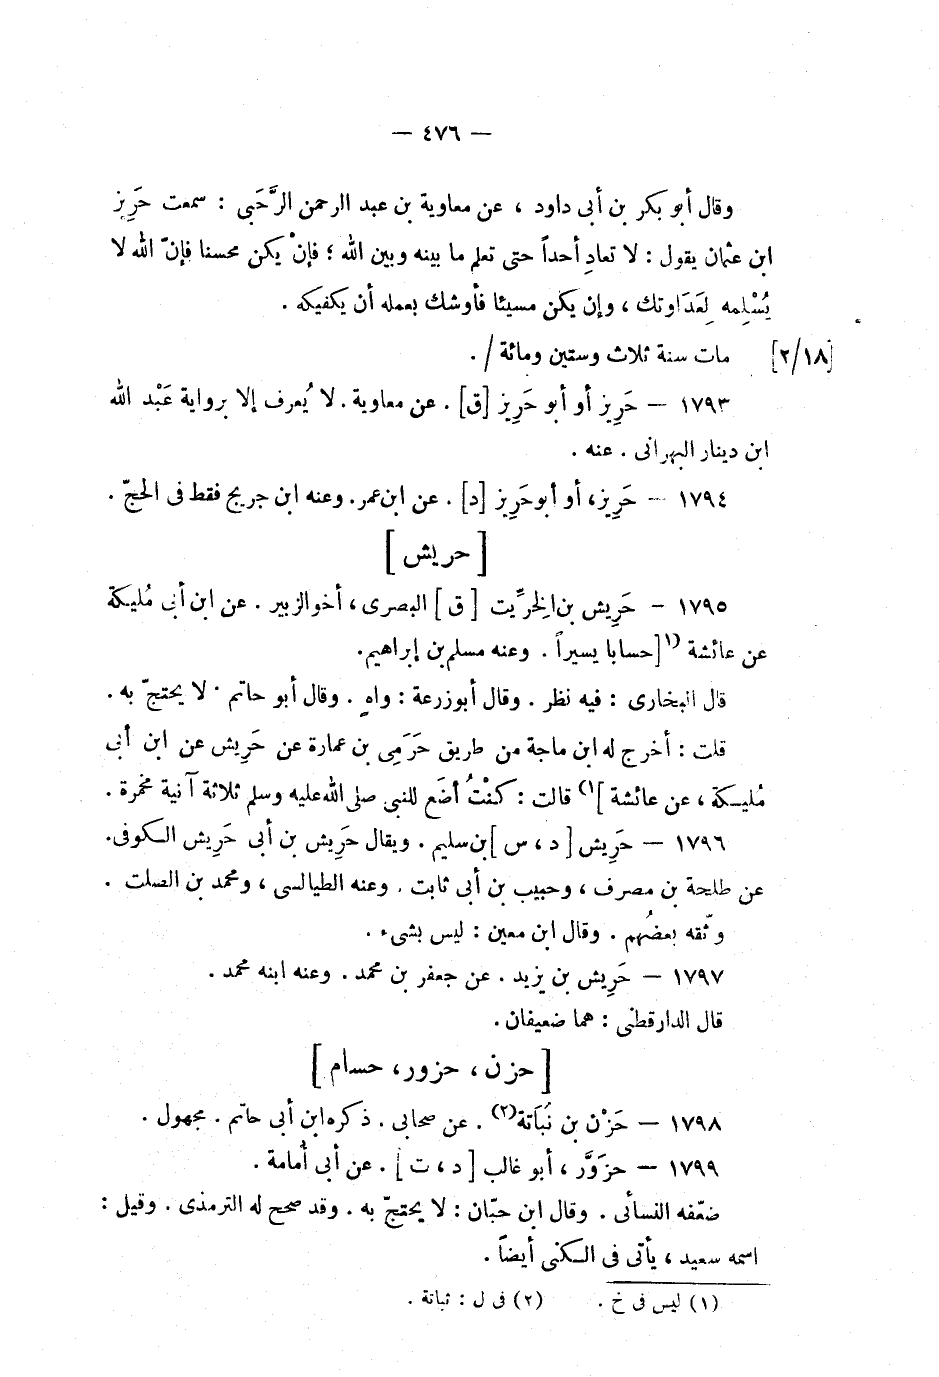 — ٤٧٦ —
وقال أبو بكر بن أبى داود ، عن معاوية بن عبد الرحمن الرَّحَبى : سمعت حَرِيز
ابن عثمان يقول : لا تعادِ أحداً حتى تعلم ما بينه وبين الله ؛ فإنْ يكن محسنا فإنّ الله لا
يُسْلِمه لِعَدَاوتك ، وإن يكن مسيئا فأوشك بعمله أن يكفيكه .
[٢/١٨] مات سنة ثلاث وستين ومائة / .
١٧٩٣ — حَرِيز أو أبو حَرِيز [ق] . عن معاوية . لا يُعرف إلا برواية عَبْد الله
ابن دينار البهرانى . عنه .
١٧٩٤ — حَرِيز ، أو أبو حَرِيز [د] . عن ابن عمر . وعنه ابن جريج فقط فى الحجّ .
[ حريش ]
١٧٩٥ - حَرِيش بن الخرِّيت [ ق ] البصرى ، أخو الزبير . عن ابن أبى مُليكة
عن عائشة (١[ حسابا يسيراً . وعنه مسلم بن إبراهيم .
قال البخارى : فيه نظر . وقال أبو زرعة : واهٍ . وقال أبو حاتم . لا يحتجّ به .
قلت : أخرج له ابن ماجة من طريق حَرَمِى بن عمارة عن حَرِيش عن ابن أبى
مُليكة ، عن عائشة ]١) قالت : كنْتُ أضَع للنبى صلى الله عليه وسلم ثلاثة آنية مخمرة .
١٧٩٦ — حَرِيش [ د ، س ] بن سليم . ويقال حَرِيش بن أبى حَرِيش الكوفى .
عن طلحة بن مصرف ، وحبيب بن أبى ثابت . وعنه الطيالسى ، ومحمد بن الصلت .
وثّقه بعضُهم . وقال ابن معين : ليس بشىء .
١٧٩٧ — حَرِيش بن يزيد . عن جعفر بن محمد . وعنه ابنه محمد .
قال الدارقطنى : هما ضعيفان .
[ حزن ، حزور ، حسام ]
١٧٩٨ — حَزْن بن نُبَاتة(٢) . عن صحابى . ذكره ابن أبى حاتم . مجهول .
١٧٩٩ — حزَوَّر ، أبو غالب [ د ، ت ] . عن أبى أُمامة .
ضعّفه النسأئى . وقال ابن حبّان : لا يحتجّ به . وقد صحح له الترمذى . وقيل :
اسمه سعيد ، يأتى فى الكنى أيضاً .
(١) ليس فى خ . (٢) فى ل : ثباتة .